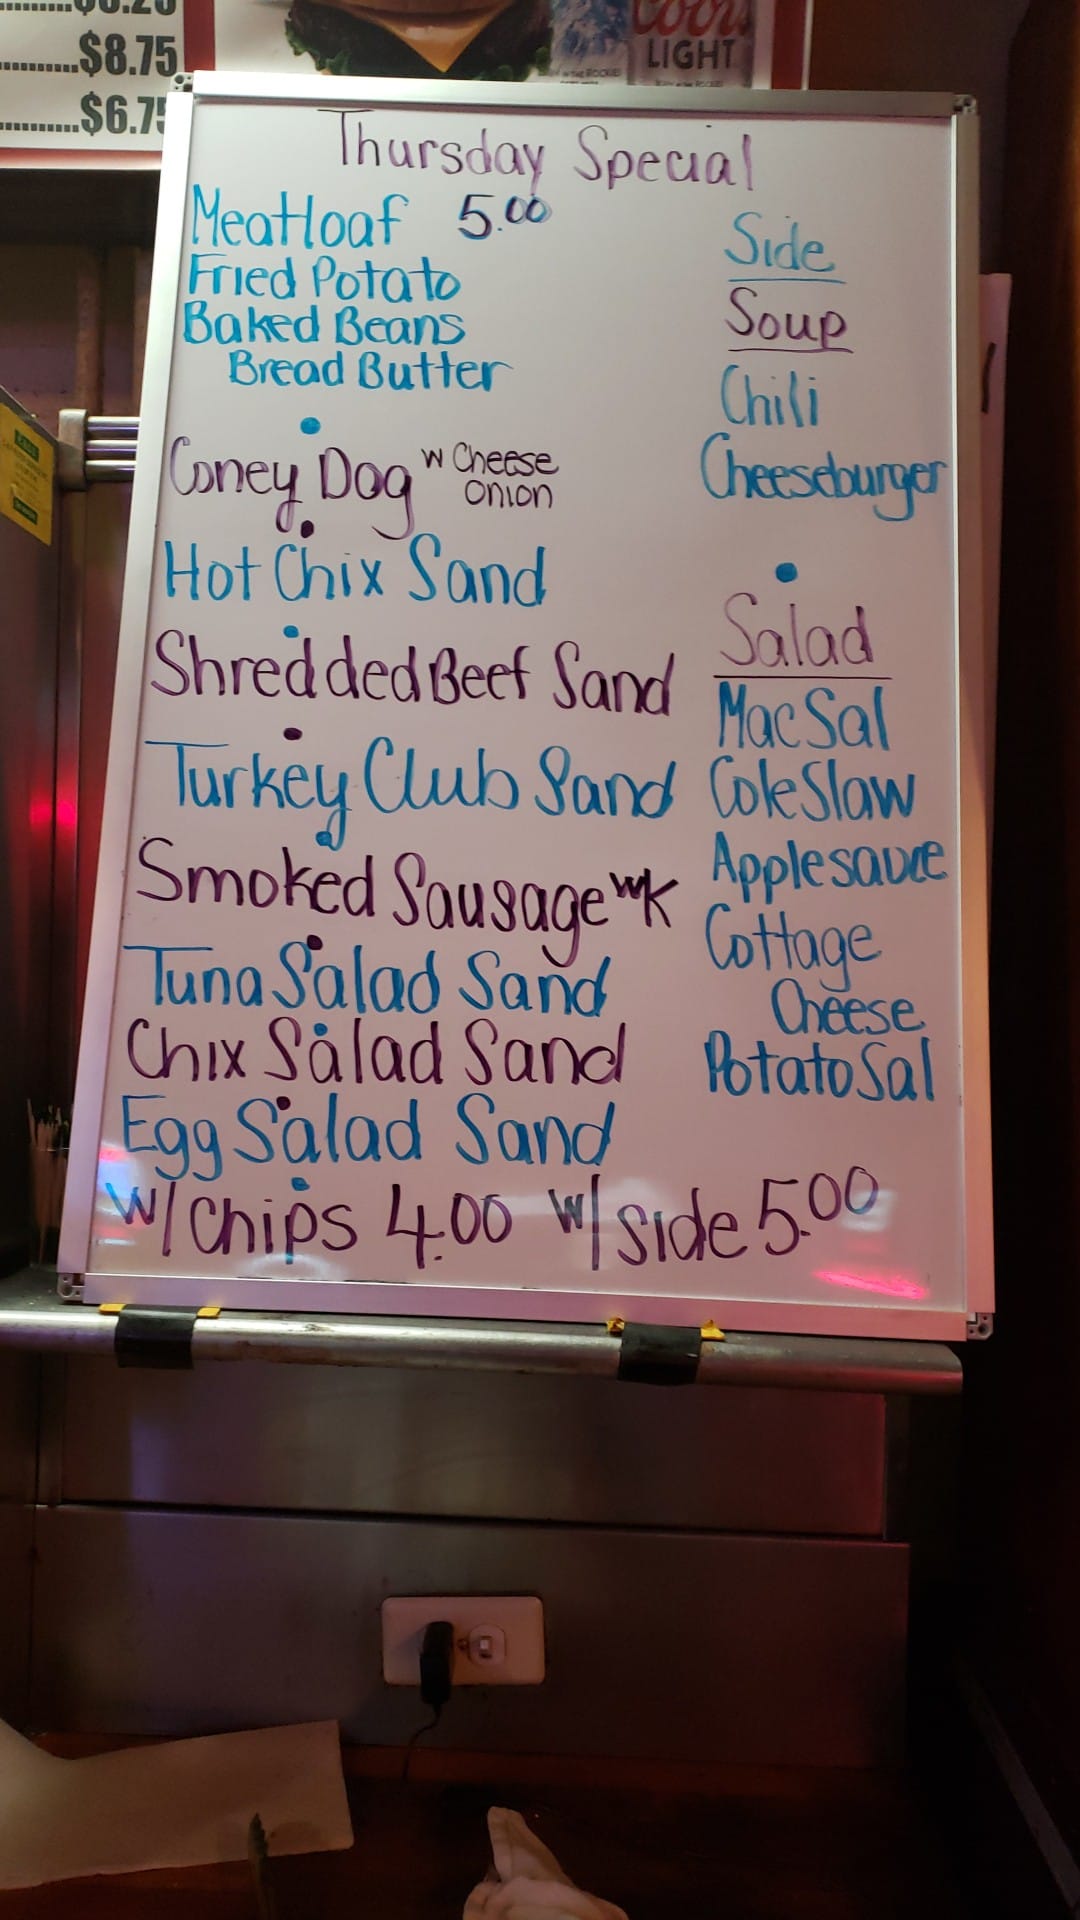 $8.75
$6.75
Coors
LIGHT
Thursday Special
Meatloaf 5.00
Fried Potato
Baked Beans
Bread Butter
Coney Dog w Cheese
Onion
Hot Chix Sand
Shredded Beef Sand
Turkey Club Sand
Smoked Sausage w K
Tuna Salad Sand
Chix Salad Sand
Egg Salad Sand
w/ Chips 4.00 w/ side 5.00
Side
Soup
Chili
Cheeseburger
Salad
Mac Sal
Cole Slaw
Applesauce
Cottage
Cheese
Potato Sal